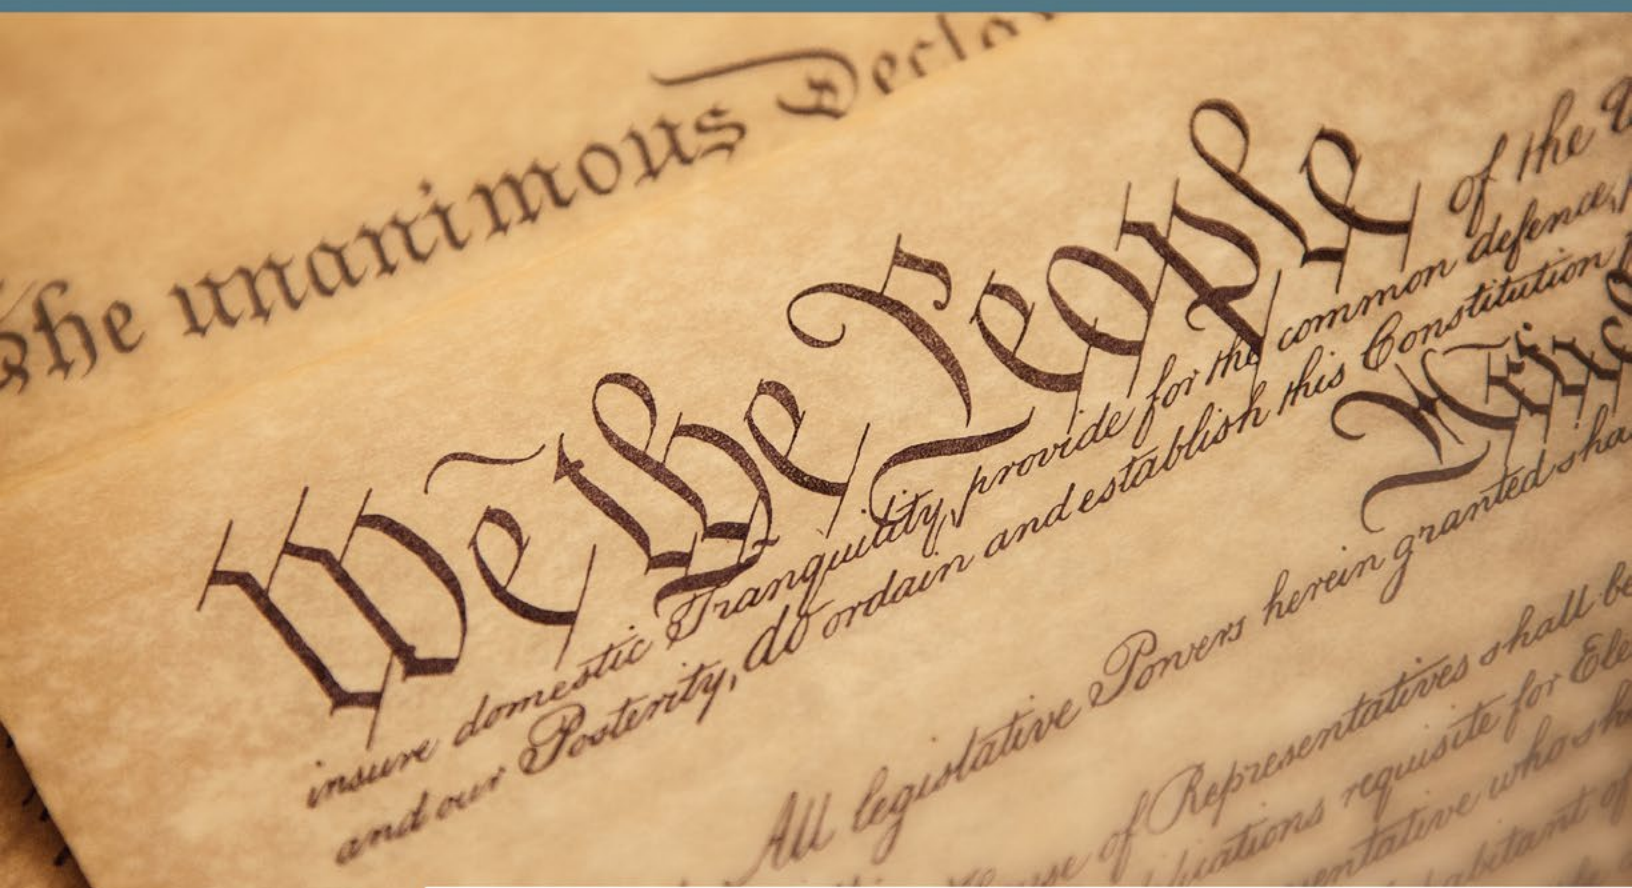 The unanimous Decla
We the People of the U
insure domestic Tranquility, provide for the common defence,
and our Posterity, do ordain and establish this Constitution
All legislative Powers herein granted sha
of Representatives shall be
ications requisite for Ele
entative who sh
habitant of